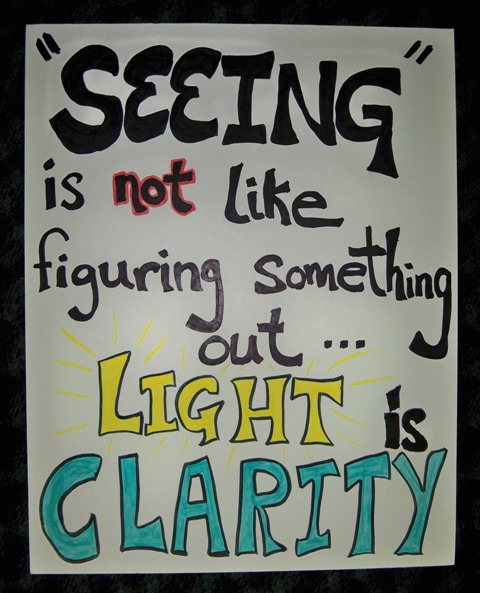 "SEEING"
is not like
figuring something
out ...
LIGHT is
CLARITY